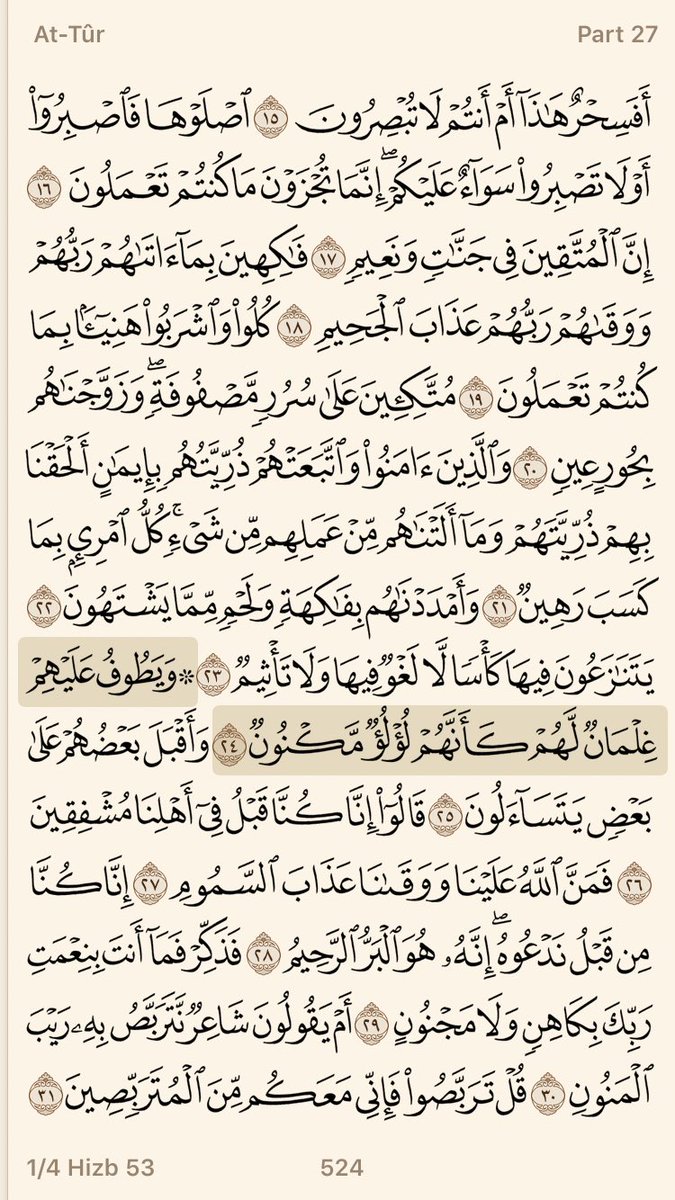 At-Tûr Part 27
أَفَسِحْرٌ هَٰذَآ أَمْ أَنتُمْ لَا تُبْصِرُونَ ١٥ ٱصْلَوْهَا فَٱصْبِرُوٓا۟
أَوْ لَا تَصْبِرُوا۟ سَوَآءٌ عَلَيْكُمْ ۖ إِنَّمَا تُجْزَوْنَ مَا كُنتُمْ تَعْمَلُونَ ١٦
إِنَّ ٱلْمُتَّقِينَ فِى جَنَّٰتٍ وَنَعِيمٍ ١٧ فَٰكِهِينَ بِمَآ ءَاتَىٰهُمْ رَبُّهُمْ
وَوَقَىٰهُمْ رَبُّهُمْ عَذَابَ ٱلْجَحِيمِ ١٨ كُلُوا۟ وَٱشْرَبُوا۟ هَنِيٓـًٔۢا بِمَا
كُنتُمْ تَعْمَلُونَ ١٩ مُتَّكِـِٔينَ عَلَىٰ سُرُرٍ مَّصْفُوفَةٍ ۖ وَزَوَّجْنَٰهُم
بِحُورٍ عِينٍ ٢٠ وَٱلَّذِينَ ءَامَنُوا۟ وَٱتَّبَعَتْهُمْ ذُرِّيَّتُهُم بِإِيمَٰنٍ أَلْحَقْنَا
بِهِمْ ذُرِّيَّتَهُمْ وَمَآ أَلَتْنَٰهُم مِّنْ عَمَلِهِم مِّن شَىْءٍ ۚ كُلُّ ٱمْرِئٍۭ بِمَا
كَسَبَ رَهِينٌ ٢١ وَأَمْدَدْنَٰهُم بِفَٰكِهَةٍ وَلَحْمٍ مِّمَّا يَشْتَهُونَ ٢٢
يَتَنَٰزَعُونَ فِيهَا كَأْسًا لَّا لَغْوٌ فِيهَا وَلَا تَأْثِيمٌ ٢٣ ۞ وَيَطُوفُ عَلَيْهِمْ
غِلْمَانٌ لَّهُمْ كَأَنَّهُمْ لُؤْلُؤٌ مَّكْنُونٌ ٢٤ وَأَقْبَلَ بَعْضُهُمْ عَلَىٰ
بَعْضٍ يَتَسَآءَلُونَ ٢٥ قَالُوٓا۟ إِنَّا كُنَّا قَبْلُ فِىٓ أَهْلِنَا مُشْفِقِينَ
٢٦ فَمَنَّ ٱللَّهُ عَلَيْنَا وَوَقَىٰنَا عَذَابَ ٱلسَّمُومِ ٢٧ إِنَّا كُنَّا
مِن قَبْلُ نَدْعُوهُ ۖ إِنَّهُۥ هُوَ ٱلْبَرُّ ٱلرَّحِيمُ ٢٨ فَذَكِّرْ فَمَآ أَنتَ بِنِعْمَتِ
رَبِّكَ بِكَاهِنٍ وَلَا مَجْنُونٍ ٢٩ أَمْ يَقُولُونَ شَاعِرٌ نَّتَرَبَّصُ بِهِۦ رَيْبَ
ٱلْمَنُونِ ٣٠ قُلْ تَرَبَّصُوا۟ فَإِنِّى مَعَكُم مِّنَ ٱلْمُتَرَبِّصِينَ ٣١
1/4 Hizb 53 524